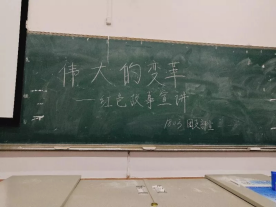 伟大的变革
——红色故事宣讲